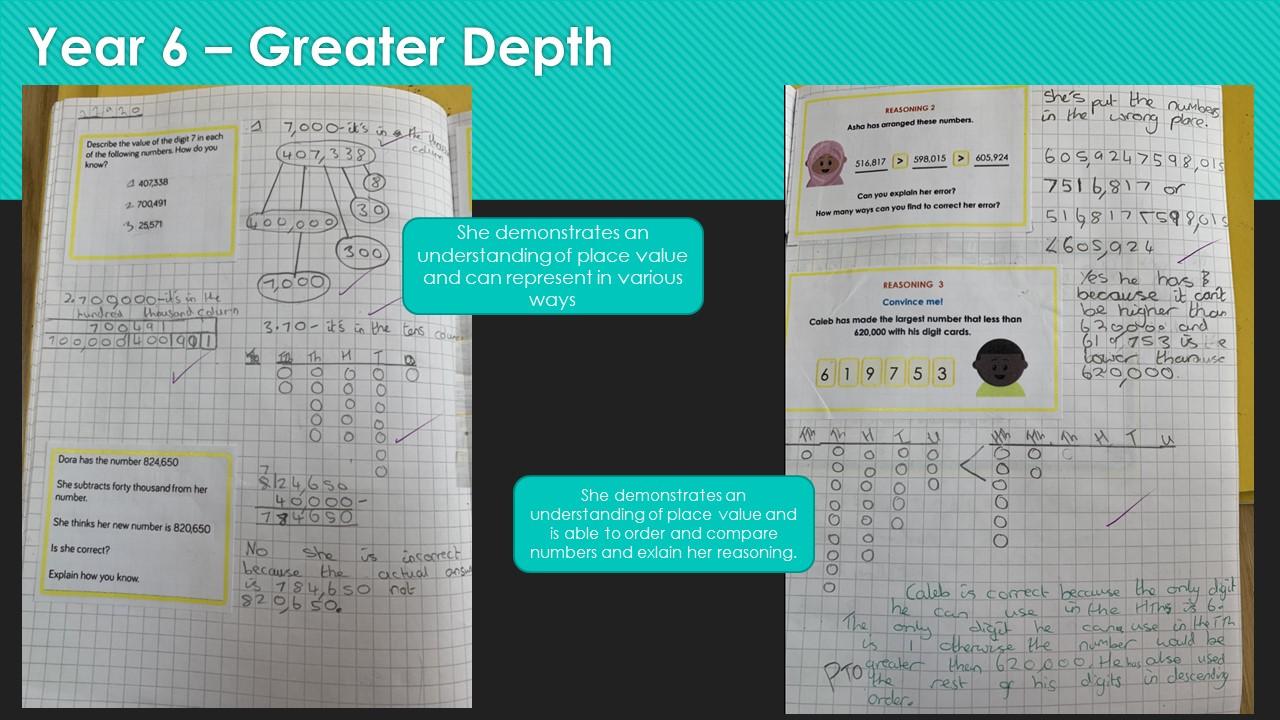 Year 6 – Greater Depth
Describe the value of the digit 7 in each
of the following numbers. How do you
know?
1. 407,338
2. 700,491
3. 25,571
7,000-it's in the
column
407,338
8
30
400,000
300
7,000
2. 700,000-it's in the
hundred thousand column
700491
3. 70 - it's in the tens
Th H T
Dora has the number 824,650
She subtracts forty thousand from her
number.
She thinks her new number is 820,650
Is she correct?
Explain how you know.
7
8124,650
40000-
784650
No she is incorrect
because the actual
is 784,650 not
820,650.
She demonstrates an
understanding of place value
and can represent in various
ways
She demonstrates an
understanding of place value and
is able to order and compare
numbers and exlain her reasoning.
REASONING 2
Asha has arranged these numbers.
516,817 > 598,015 > 605,924
Can you explain her error?
How many ways can you find to correct her error?
She's put the numbers
in the wrong place.
605,924>598,015
>516,817 or
516,817<598,015
<605,924
REASONING 3
Convince me!
Caleb has made the largest number that less than
620,000 with his digit cards.
6 1 9 7 5 3
Yes he has
because it can't
be higher than
620,000 and
619,753 is
lower than
620,000.
Th H T U
< Th H T U
Caleb is correct because the only digit
he can use in the HThs is 6.
The only digit he can use in the TTh
is 1 otherwise the number would be
greater than 620,000. He has also used
PTO the rest of his digits in descending
order.